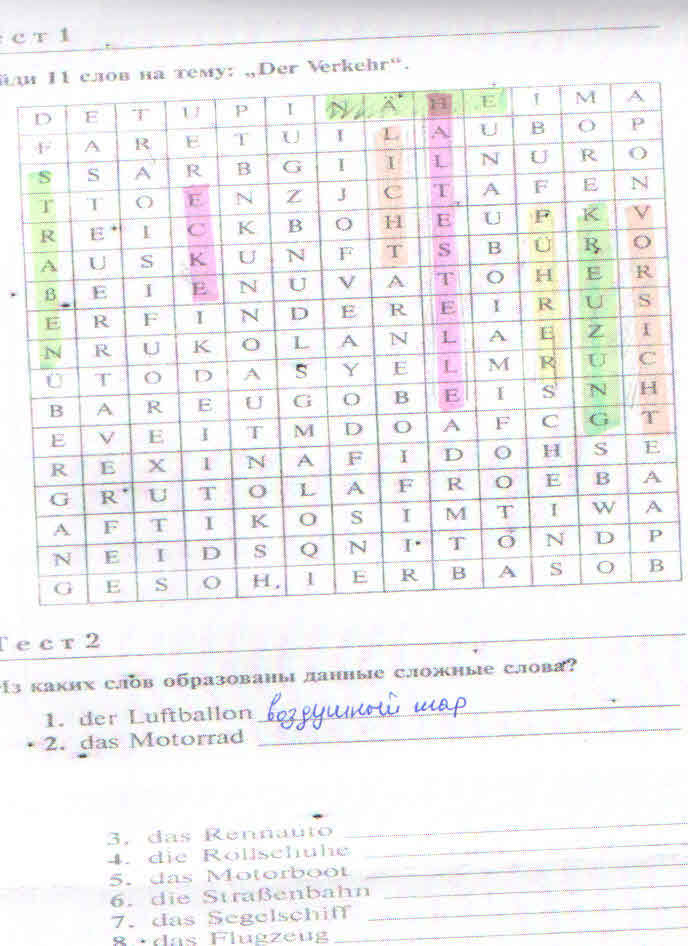 ест 1
йди 11 слов на тему: „Der Verkehr“.
D E T U P I N Ä H E I M A
F A R E T U I L A U B O P
S S A R B G I I L N U R O
T T O E N Z J C T A F E N
R E I C K B O H E U F K V
A U S K U N F T S B Ü R O
ß E I E N U V A T O H E R
E R F I N D E R E I R U S
N R U K O L A N L A E Z I
Ü T O D A S Y E L M R U C
B A R E U G O B E I S N H
E V E I T M D O A F C G T
R E X I N A F I D O H S E
G R U T O L A F R O E B A
A F T I K O S I M T I W A
N E I D S Q N I T O N D P
G E S O H I E R B A S O B
Тест 2
Из каких слов образованы данные сложные слова?
1. der Luftballon воздушный шар
2. das Motorrad
3. das Rennauto
4. die Rollschuhe
5. das Motorboot
6. die Straßenbahn
7. das Segelschiff
8. das Flugzeug